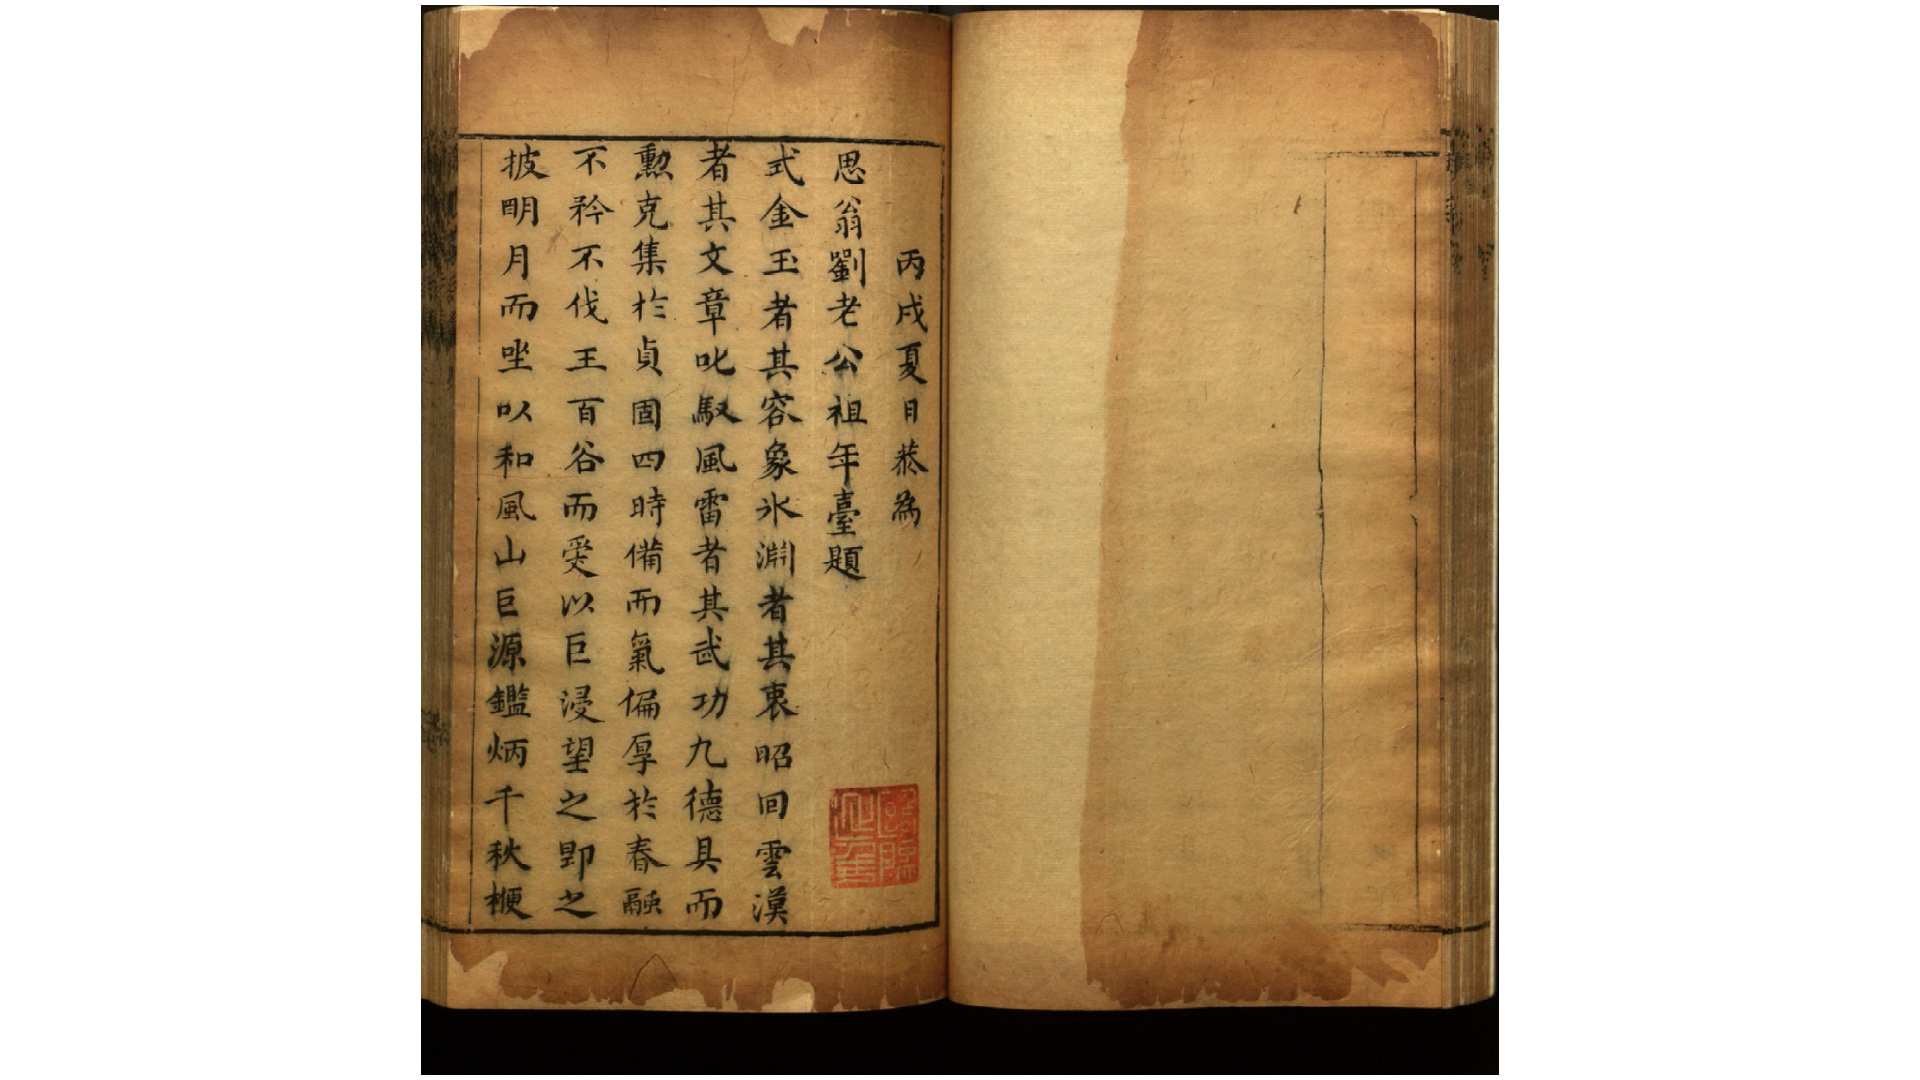 丙戌夏日恭為
思翁劉老公祖年臺題
式金玉者其容象氷淵者其衷昭回雲漢
者其文章叱馭風雷者其武功九德具而
勲克集於貞固四時備而氣偏厚於春融
不矜不伐王百谷而受以巨浸望之即之
披明月而坐以和風山巨源鑑炳千秋梗